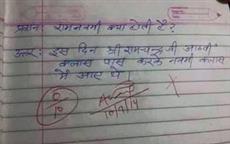 प्रश्न: रामनवमी क्या होती है?
उत्तर: इस दिन श्री रामचन्द्र जी आठवीं
क्लास पास करके नवमी क्लास
में आए थे।
6/10
10/9/14